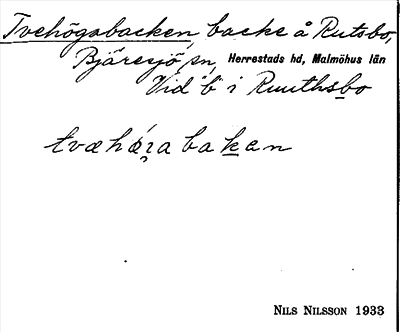 Tvehögabacken, backe å Rutsbo,
Bjäresjö sn, Herrestads hd, Malmöhus län
Vid "b" i Ruuthsbo
tvæhǿʒa baken
NILS NILSSON 1933